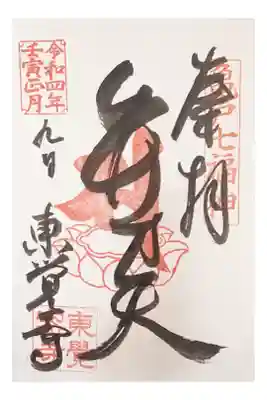 奉拝
亀戸七福神
弁才天
令和四年
壬寅正月
九日
東覚寺
東覺